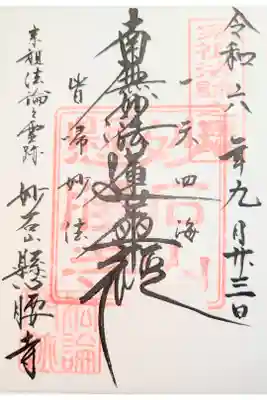 令和六年九月廿三日
一天四海
南無妙法蓮華経
皆帰妙法
宗祖法論之霊跡
妙石山 懸腰寺